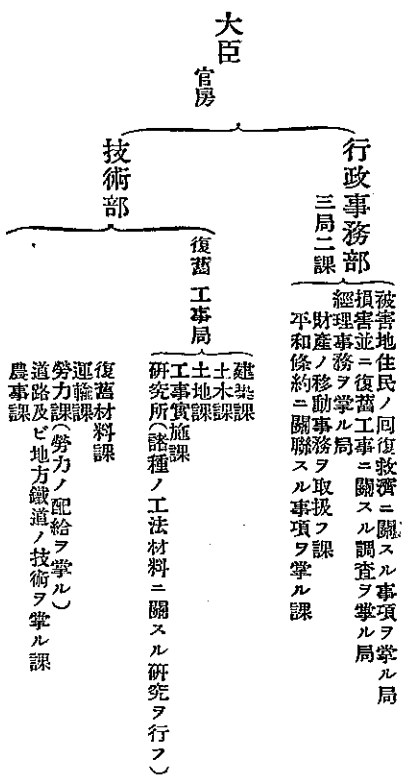 大臣
官房
行政事務部
三局二課
被害地住民ノ回復救濟ニ關スル事項ヲ掌ル局
損害並ニ復舊工事ニ關スル調査ヲ掌ル局
經理事務ヲ掌ル局
財產ノ移動事務ヲ取扱フ課
平和條約ニ關聯スル事項ヲ掌ル課
技術部
復舊工事局
建築課
土木課
土地課
工事實施課
研究所(諸種ノ工法材料ニ關スル研究ヲ行フ)
復舊材料課
運輸課
勞力課(勞力ノ配給ヲ掌ル)
道路及ビ地方鐵道ノ技術ヲ掌ル課
農事課